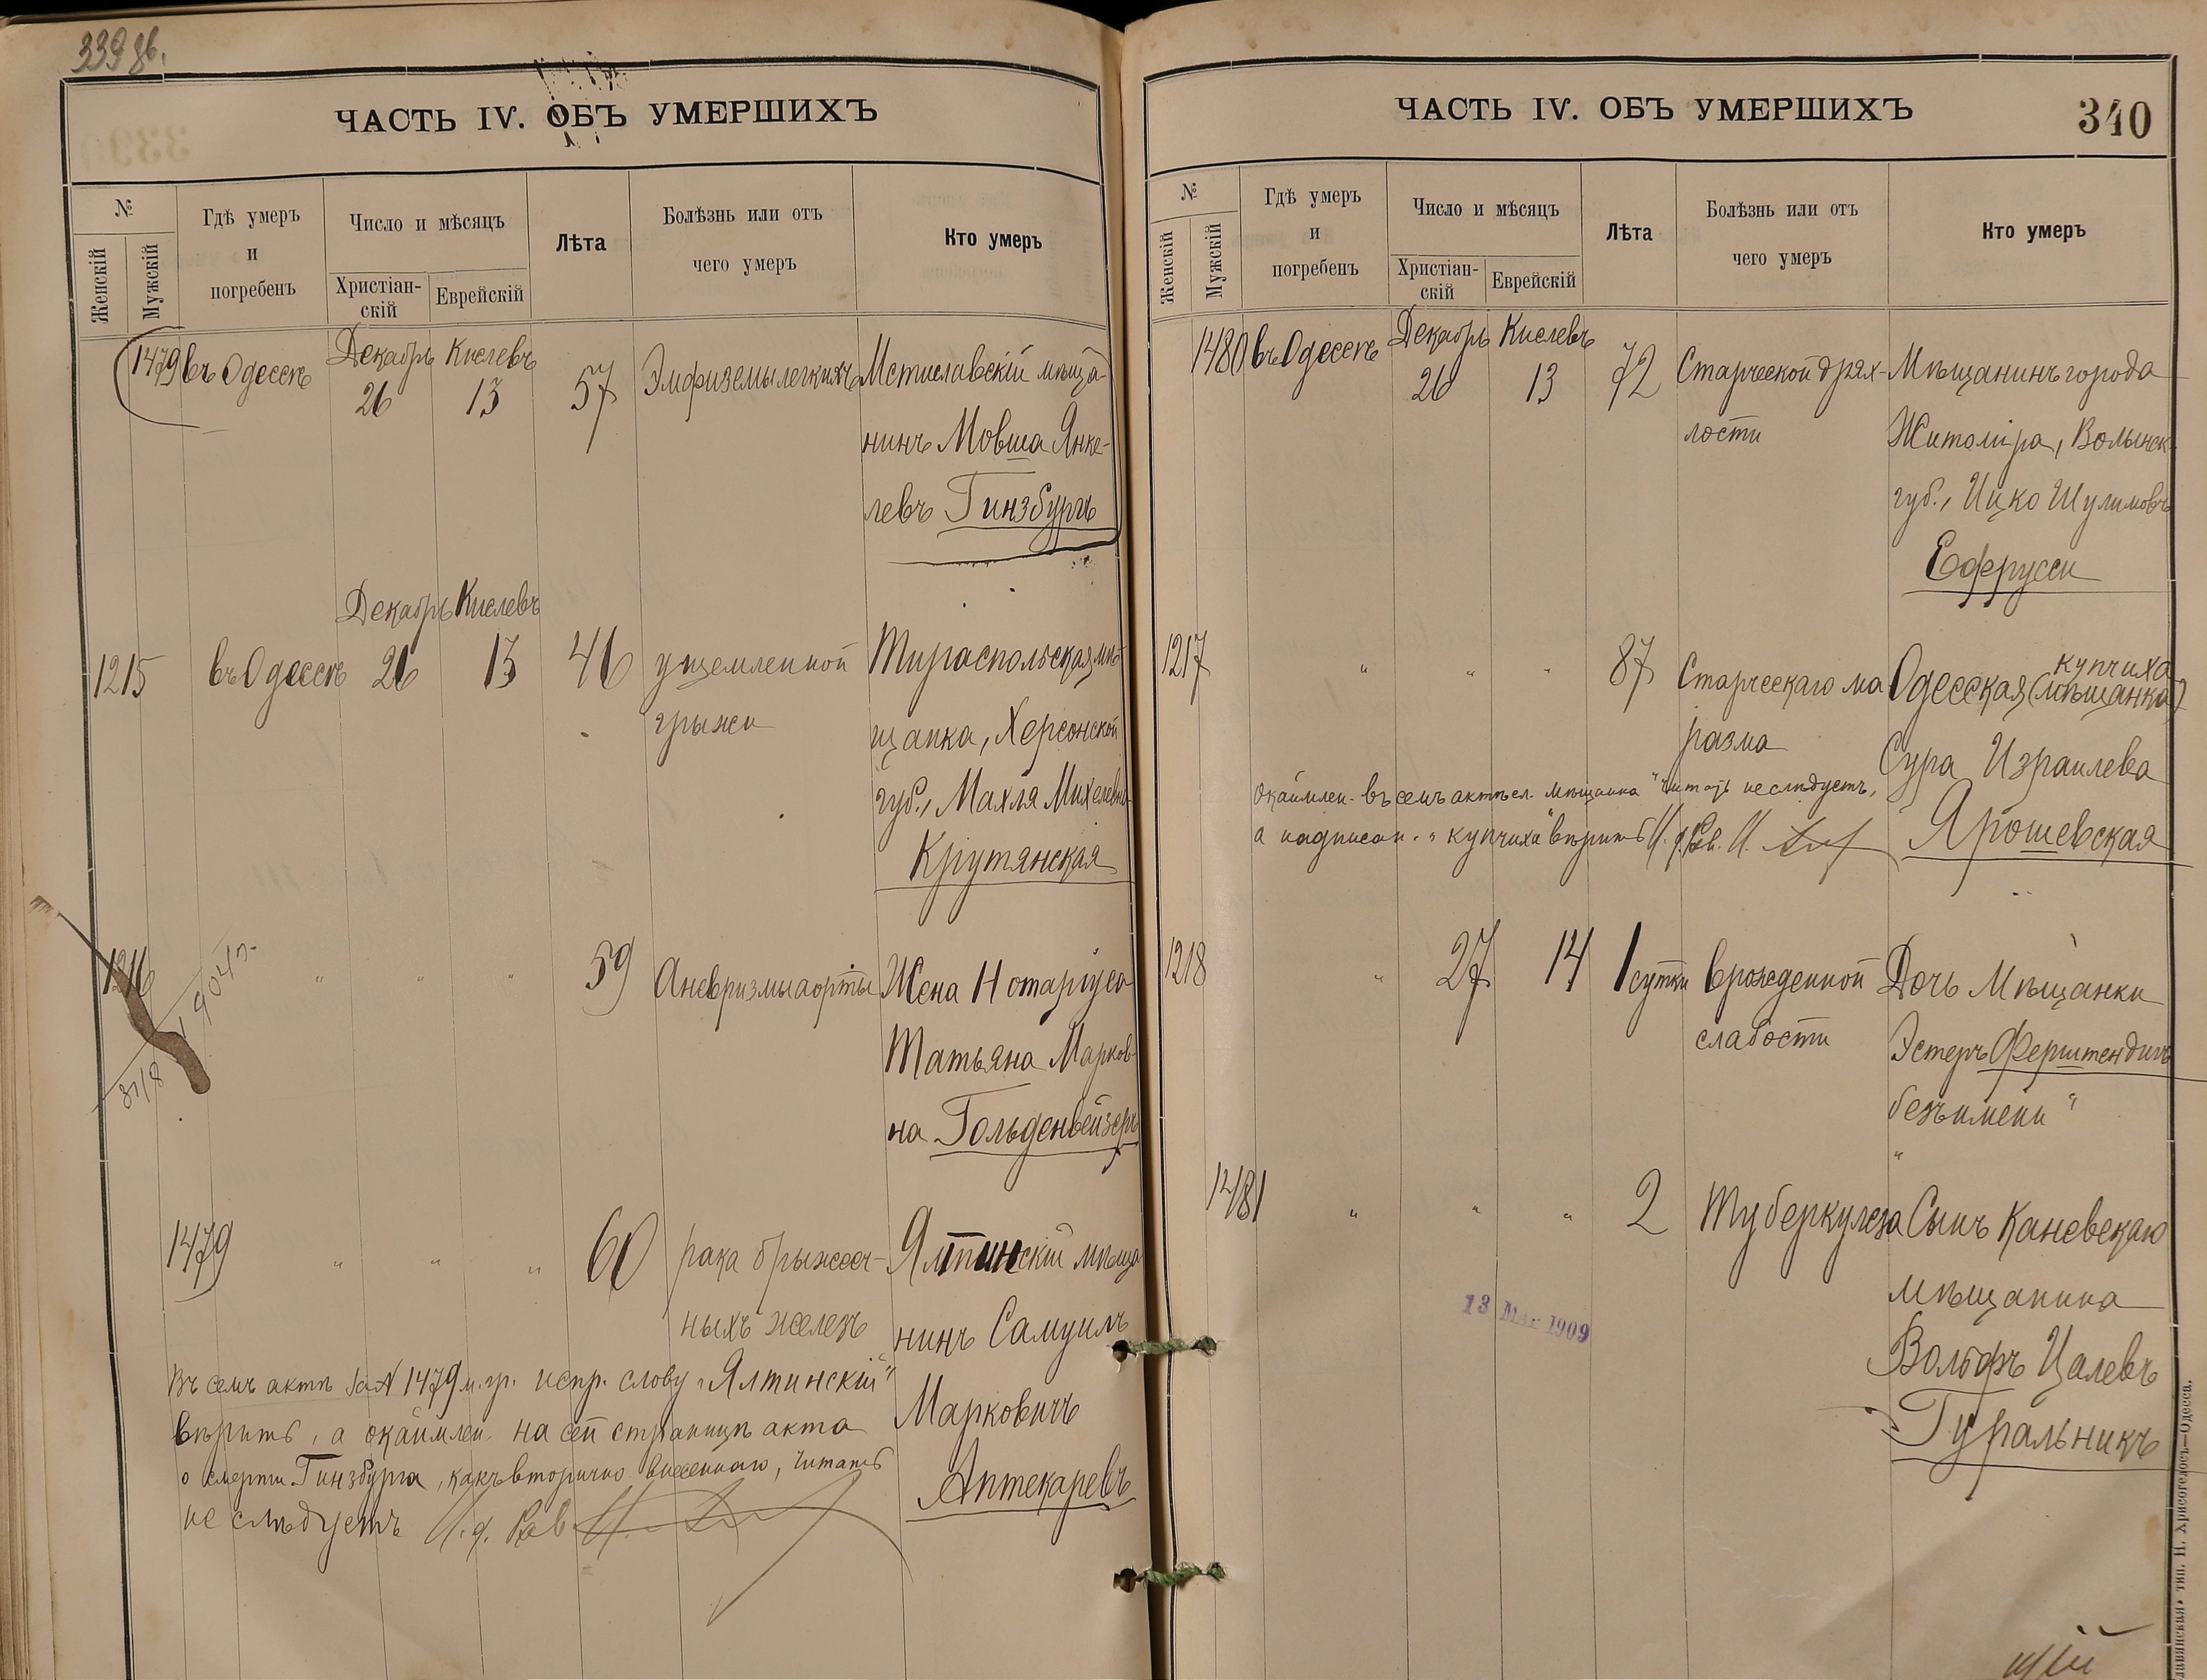 339 об.
ЧАСТЬ IV. ОБЪ УМЕРШИХЪ
№
Женскій
Мужскій
Гдѣ умеръ
и
погребенъ
Число и мѣсяцъ
Христіан-
скій
Еврейскій
Лѣта
Болѣзнь или отъ
чего умеръ
Кто умеръ
1479 въ Одессѣ Декабрь 26 Кислевъ 13 57 Эмфиземы легкихъ Мстиславскій мѣща-
нинъ Мовша Янке-
левъ Гинзбургъ
Декабрь Кислевъ
1215 въ Одессѣ 26 13 46 ущемленной Тираспольская мѣ-
грыжи щанка, Херсонской
губ., Махля Михелевна
Крутянская
1216 " " " 59 Аневризмы аорты Жена Нотаріуса
Татьяна Марков-
на Гольденвейзеръ
1479 " " " 60 рака брыжееч- Ялтинскій мѣща
ныхъ железъ нинъ Самуилъ
Марковичъ
Аптекаревъ
Въ семъ актѣ за № 1479 м. гр. испр. слову „Ялтинскій"
вѣрить, а окаймлен. на сей страницѣ акта
о смерти Гинзбурга, какъ вторично внесеннаго, читать
не слѣдуетъ И. д. Рав
ЧАСТЬ IV. ОБЪ УМЕРШИХЪ
340
№
Женскій
Мужскій
Гдѣ умеръ
и
погребенъ
Число и мѣсяцъ
Христіан-
скій
Еврейскій
Лѣта
Болѣзнь или отъ
чего умеръ
Кто умеръ
1480 въ Одессѣ Декабрь 26 Кислевъ 13 72 Старческой дрях- Мѣщанинъ города
лости Житоміра, Волынск.
губ., Ицко Шулимовъ
Ефрусси
купчиха
1217 " " " 87 Старческаго ма Одесская (мѣщанка)
разма Сура Израилева
Ярошевская
окаймлен. въ семъ актѣ сл. мѣщанка" читать не слѣдуетъ,
а надписан. „купчиха" вѣрить И. д. Рав. И.
1218 " 27 14 1 сутки врожденной Дочь Мѣщанки
слабости Эстеръ Ферштендигъ
безъ имени "
1481 " " " 2 Туберкулеза Сынъ Каневскаго
мѣщанина
Вольфъ Цалевъ
Гуральникъ
13 Мая 1909
тип. Н. Хрисогелосъ—Одесса.